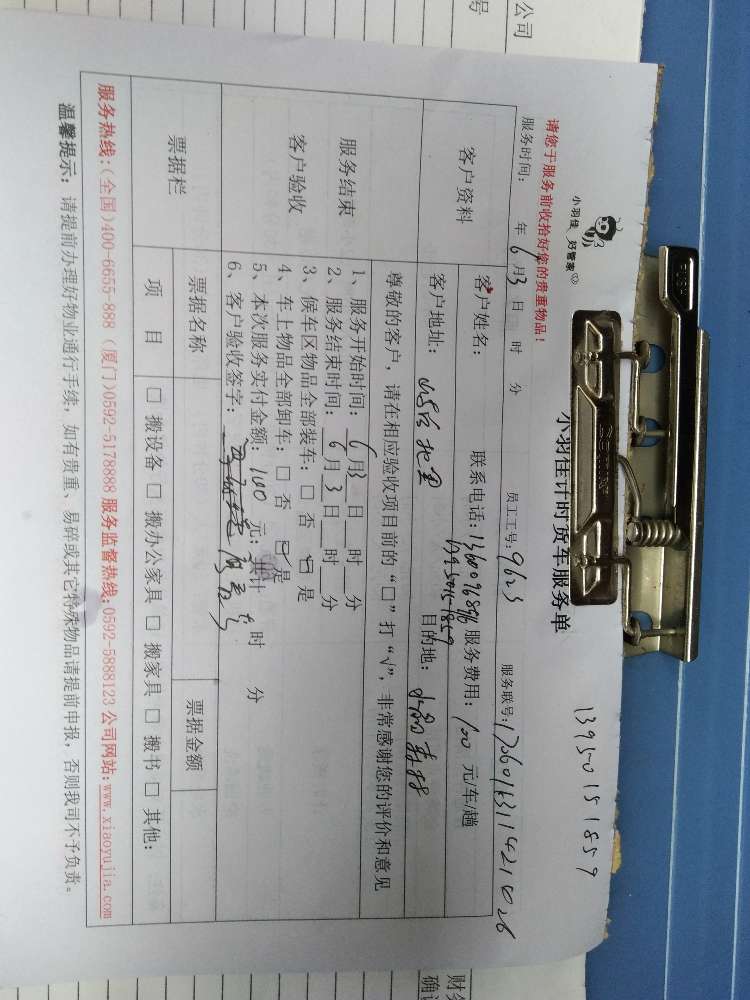 公司
号
13950151859
小羽佳 好管家
小羽佳计时货车服务单
请您于服务前收拾好您的贵重物品！
服务时间： 年 6 月 3 日 时 分 员工工号：9623 服务联号：
客户资料
客户姓名： 联系电话： 服务费用：100 元/车/趟
13950151859
客户地址： 目的地：
尊敬的客户，请在相应验收项目前的“□”打“√”，非常感谢您的评价和意见
服务结束
客户验收
1、服务开始时间：6月3日 时 分
2、服务结束时间：6月3日 时 分
3、候车区物品全部装车：□ 否 □ 是
4、车上物品全部卸车：□ 否 □ 是
5、本次服务实付金额：100 元；共计 时 分
6、客户验收签字：
票据栏
票据名称 票据金额
项 目 □ 搬设备 □ 搬办公家具 □ 搬家具 □ 搬书 □ 其他：
服务热线：(全国)400-6655-888 (厦门)0592-5178888 服务监督热线：0592-5888123 公司网站：www.xiaoyujia.com
温馨提示：请提前办理好物业通行手续，如有贵重、易碎或其它特殊物品请提前申报，否则我司不予负责。
财务
确认